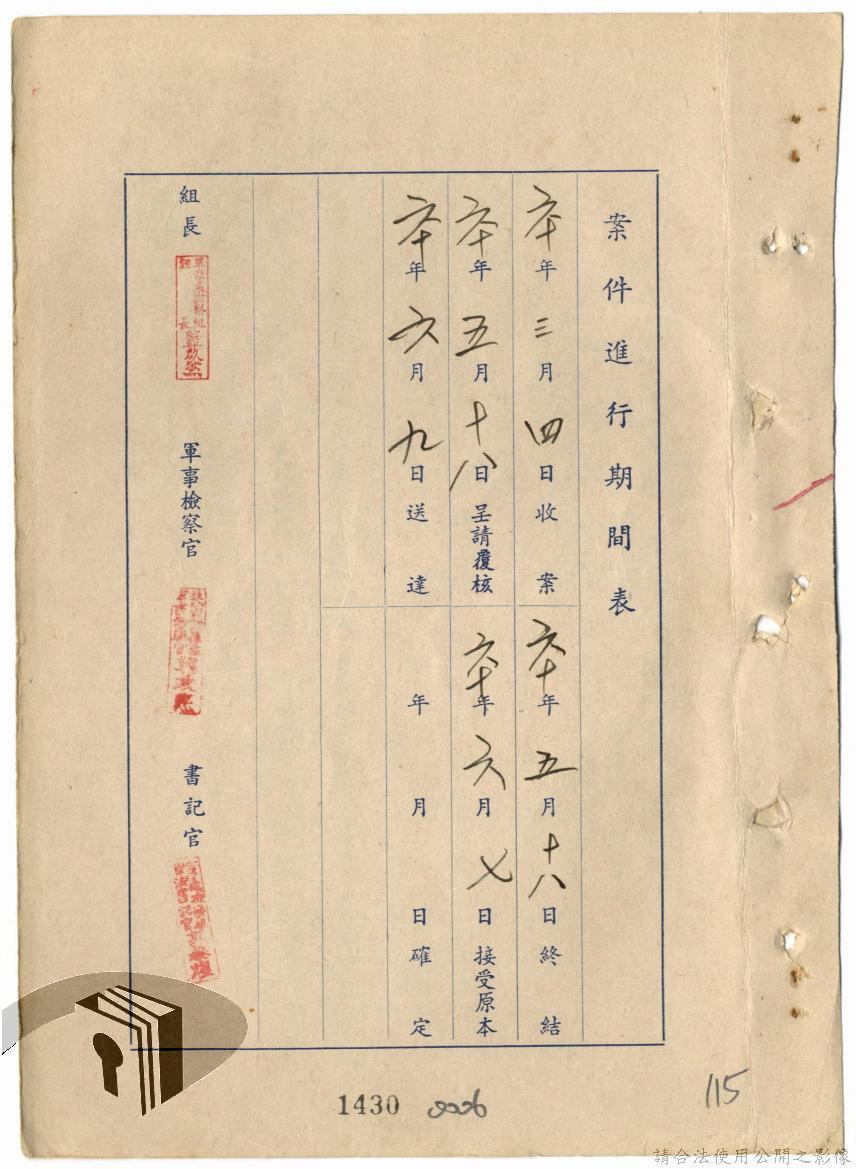 案件進行期間表
六十年三月四日收案
六十年五月十八日終結
六十年五月十八日呈請覆核
六十年六月七日接受原本
六十年六月九日送達
年月日確定
組長
軍事檢察官
書記官
1430
115
請合法使用公開之影像